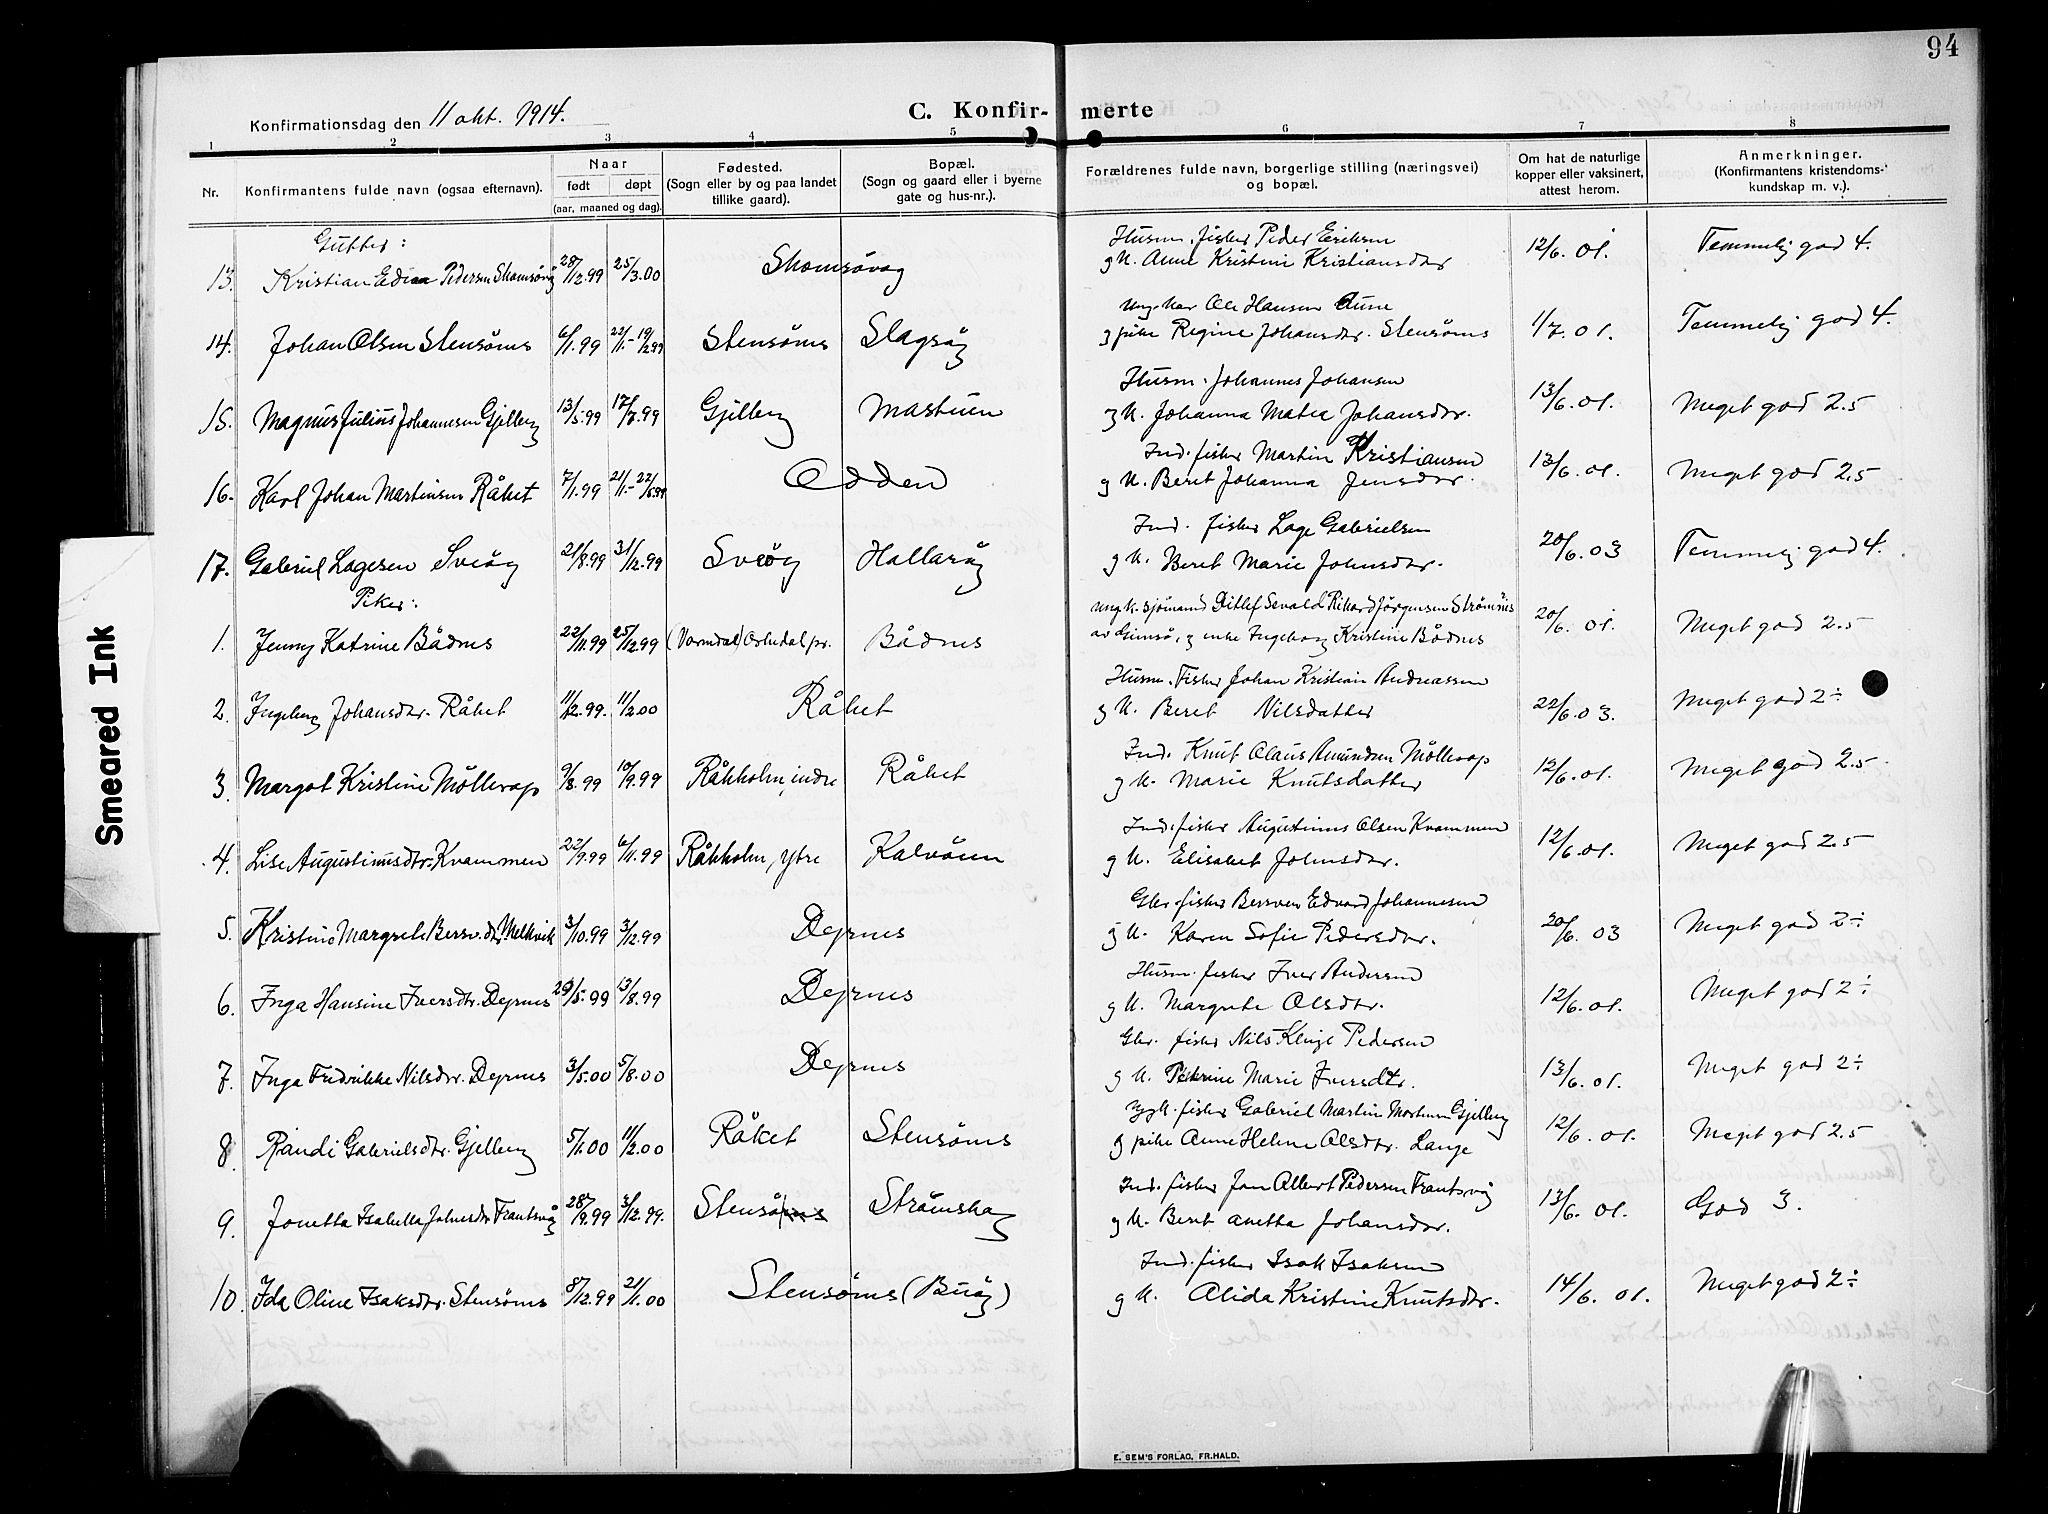 94
Konfirmationsdag den 11 okt. 1914.
C. Konfir- merte
1 2 3 4 5 6 7 8
Nr. Konfirmantens fulde navn (ogsaa efternavn). Naar født døpt (aar, maaned og dag). Fødested. (Sogn eller by og paa landet tillike gaard). Bopæl. (Sogn og gaard eller i byerne gate og hus-nr.). Forældrenes fulde navn, borgerlige stilling (næringsvei) og bopæl. Om hat de naturlige kopper eller vaksinert, attest herom. Anmerkninger. (Konfirmantens kristendoms-kundskap m. v.).
Gutter:
Husm. fisker Peder Eriksen
13. Kristian Pedersen 28/12.99 25/3.00 g k. Anne Kristine Kristiansdtr 12/6. 01. Temmelig god 4.
Ungkar Ole Hansen Aune
14. Johan Olsen Stensønes 6/1.99 22/1.- 19/2.99 Stensønes Slagsåg g pike Regine Johansdtr. Stensønes 1/7. 01. Temmelig god 4.
Husm. Johannes Johansen
15. Magnus Julius Johannesen Gjelberg 13/5.99 17/7.99 Gjelberg g k. Johanna Johansdtr. 13/6. 01. Meget god 2.5
Ind. fisker Martin Kristiansen
16. Karl Johan Martinsen Råket 7/1.99 21/1.- Odden g k. Beret Johanna Jensdtr. 13/6. 01. Meget god 2.5
Ind. fisker Lage Gabrielsen
17. Gabriel Lagesen Sveåg 21/8.99 31/12.99 Sveåg Hallaråg g k. Beret Marie Johnsdtr. 20/6. 03 Temmelig god 4.
Piker:
ungk. sjömand Ditlef Sevald Rikard Jørgensen Strømsnes
1. Jenny Katrine Bådnes 22/11.99 25/12.99 Orkedal pr. Bådnes av Gimsø, g enke Ingeborg Kristine Bådnes 20/6. 01. Meget god 2.5
Husm. Fisker Johan Kristian Andreassen
2. Ingeborg Johansdtr. Råket 11/12.99. 11/2.00 Råket g k. Beret Nilsdatter 22/6. 03. Meget god 2÷
Ind. Knut Olaus Amundsen Møllerop
3. Margot Kristine Møllerop 9/8.99 10/9.99 Råkholm, indre Råket g k. Marie Knutsdatter 12/6. 01. Meget god 2.5
Ind. fisker Augustinus Olsen Kvammen
4. Lise Augustinusdtr. Kvammen 22/9.99 6/11.99 Råkholm, ytre Kalvøen g k. Elisabet Johnsdtr. 12/6. 01. Meget god 2.5
Gbr. fisker Bersven Edvard Johannesen
5. Kristine Margrete Bersv.dtr. Melkvik 3/10.99 3/12.99 Dyrnes g k. Karen Sofie Pedersdtr. 20/6. 03 Meget god 2÷
Husm. fisker Iver Andersen
6. Inga Hansine Iversdtr. Dyrnes 29/5.99 13/8.99 Dyrnes g k. Margrete Olsdtr. 12/6. 01. Meget god 2÷
Gbr. fisker Nils Klinge Pedersen
7. Inga Fredrikke Nilsdtr. Dyrnes 3/5.00 5/8.00 Dyrnes g k. Petrine Marie Iversdtr. 13/6. 01. Meget god 2÷
fisker Gabriel Martin Mortensen Gjelberg
8. Randi Gabrielsdtr. Gjelberg 5/1.00 11/2.00 Råket Stensønes g pike Anne Helene Olsdtr. Lange 12/6. 01. Meget god 2.5
Ind. fisker Jon Albert Pedersen Frantsvåg
9. Jonetta Isabella Johnsdtr. Frantsvåg 28/9.99 3/12.99. Stensønes Strømskag g k. Beret Anetta Johansdtr. 13/6. 01. God 3.
Ind. fisker Isak Isaksen
10. Ida Oline Isaksdtr. Stensønes 8/12.99 21/1.00 Stensønes (Buåg) g k. Alida Kristine Knutsdtr. 14/6. 01. Meget god 2÷
E. SEM'S FORLAG, FR.HALD.
Smeared Ink